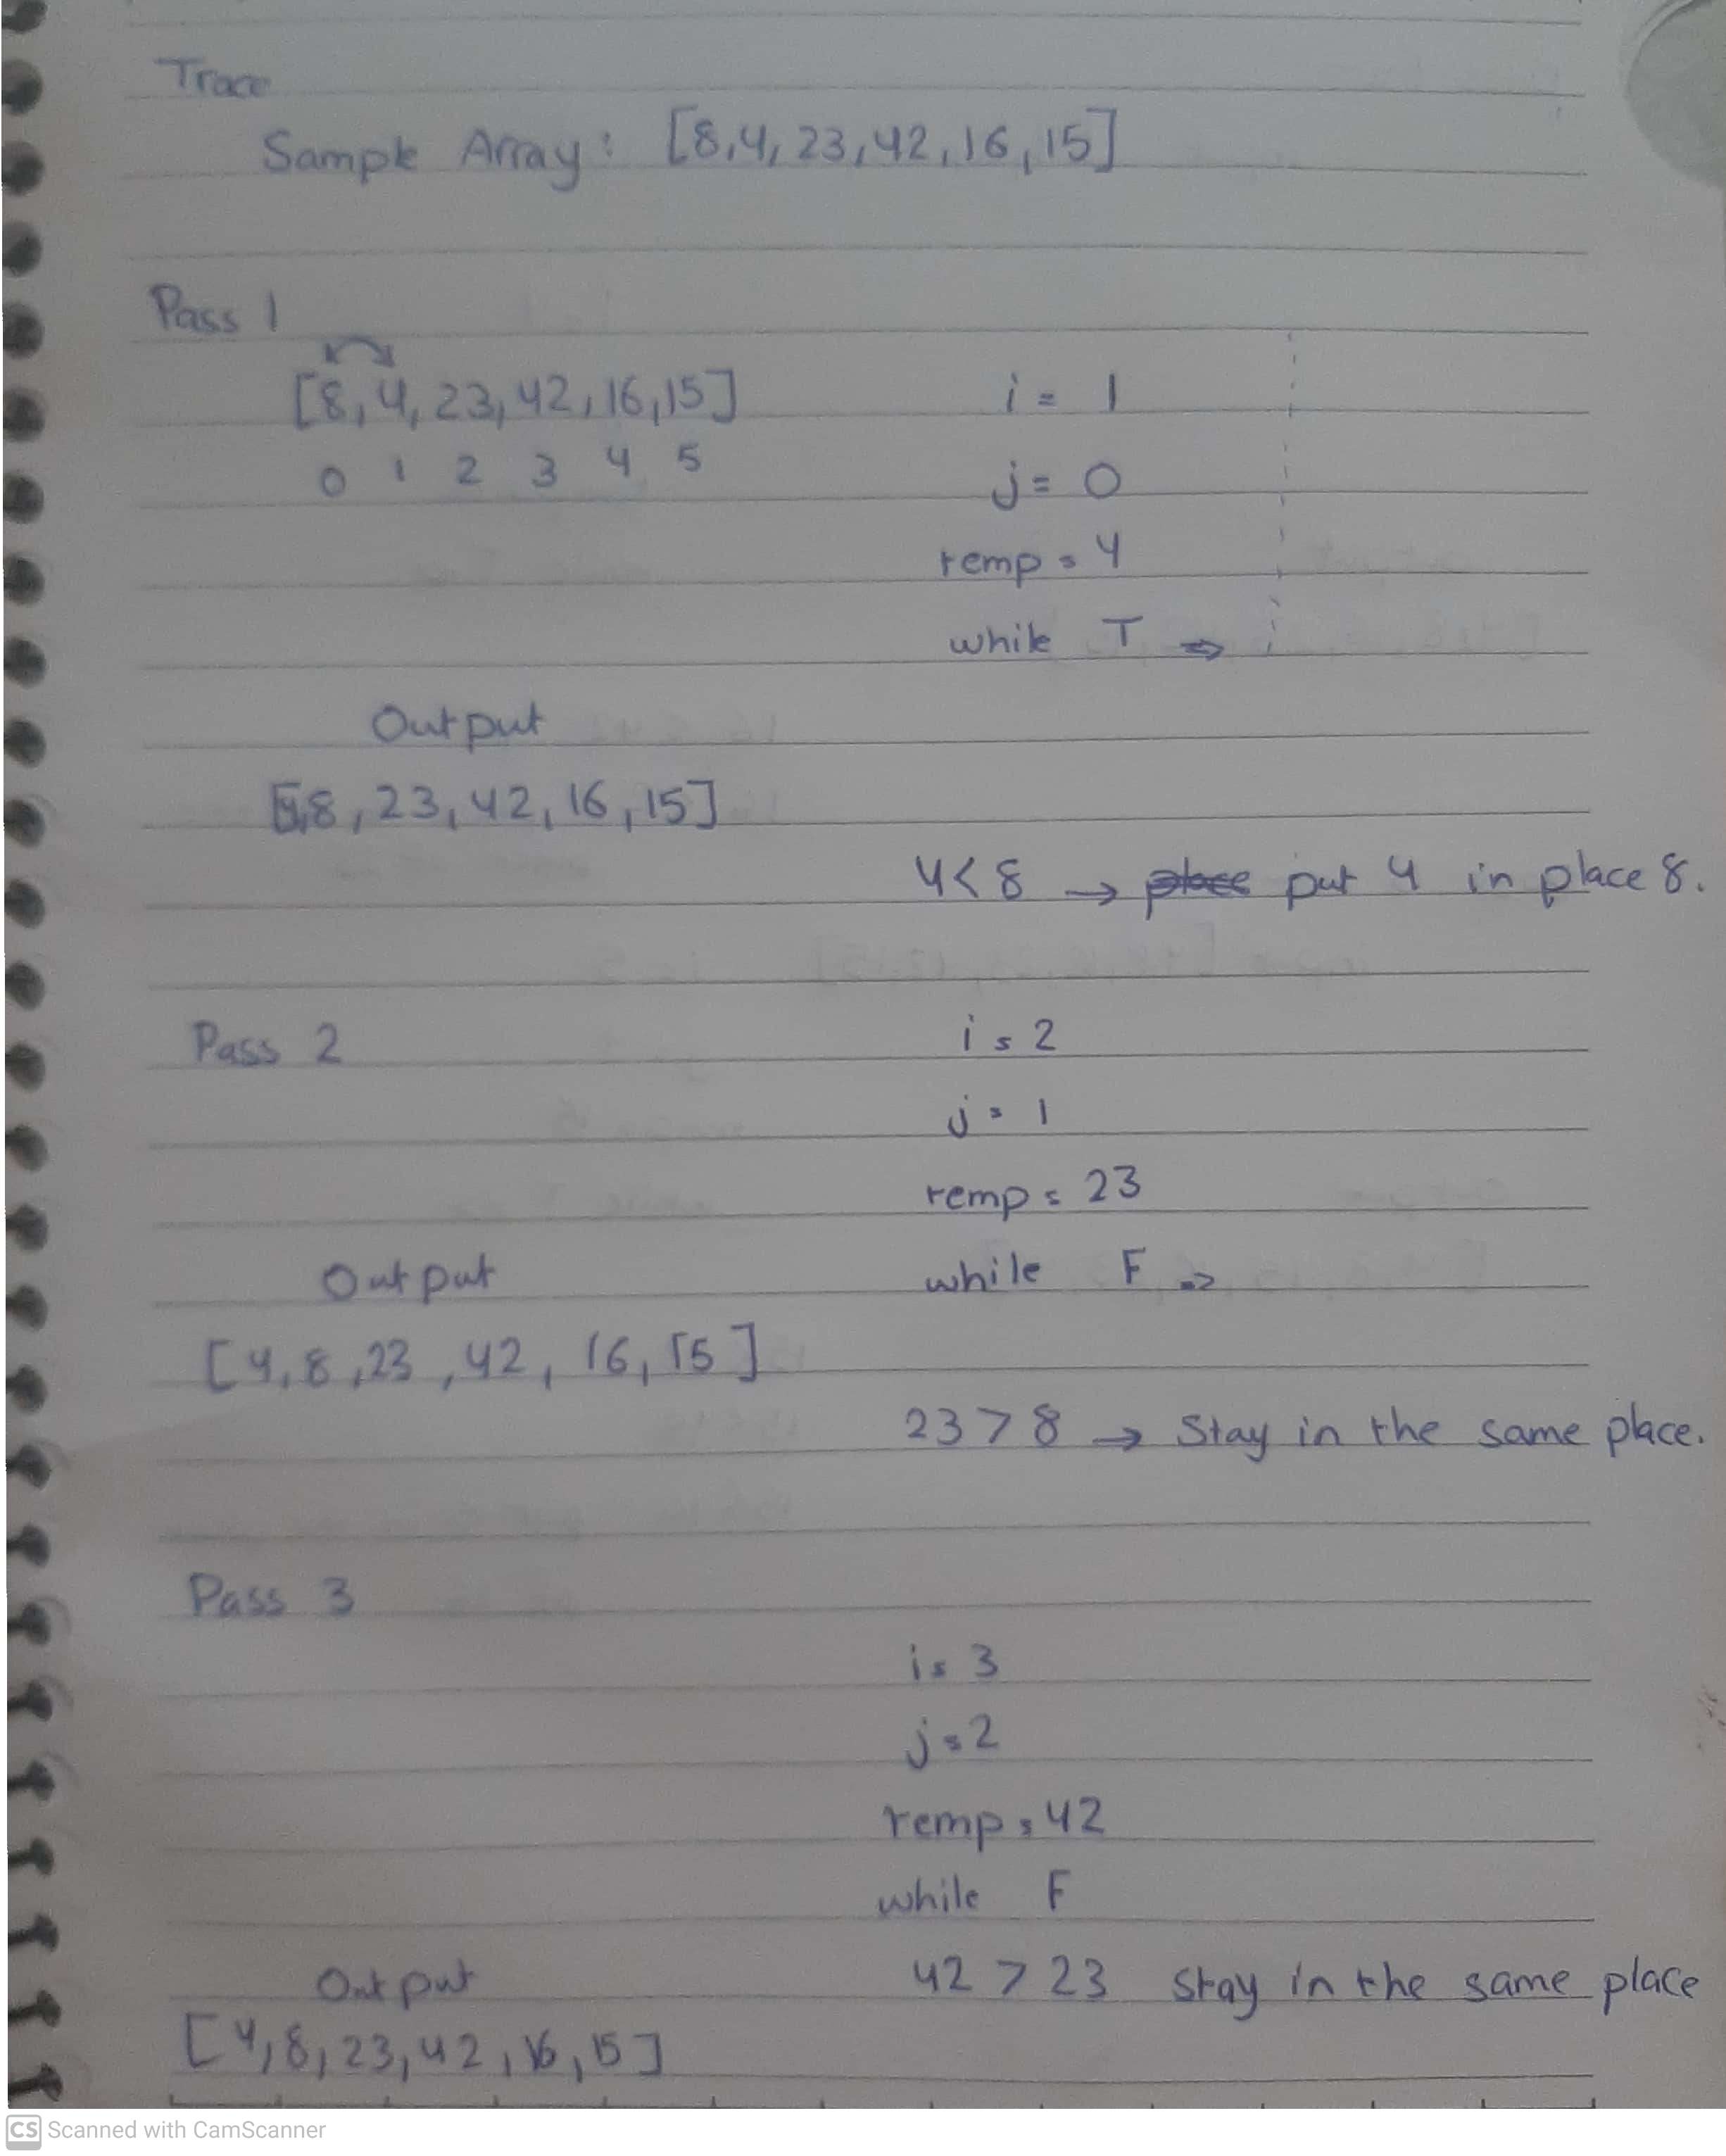 Trace
Sample Array: [8,4,23,42,16,15]
Pass 1
[8,4,23,42,16,15]
0 1 2 3 4 5
i = 1
j = 0
temp = 4
while T ⇒
Output
[4,8,23,42,16,15]
4<8 → place put 4 in place 8.
Pass 2
i = 2
j = 1
temp = 23
while F ⇒
Output
[4,8,23,42,16,15]
23>8 → Stay in the same place.
Pass 3
i = 3
j = 2
temp = 42
while F
42 > 23 Stay in the same place
Output
[4,8,23,42,16,15]
CS Scanned with CamScanner